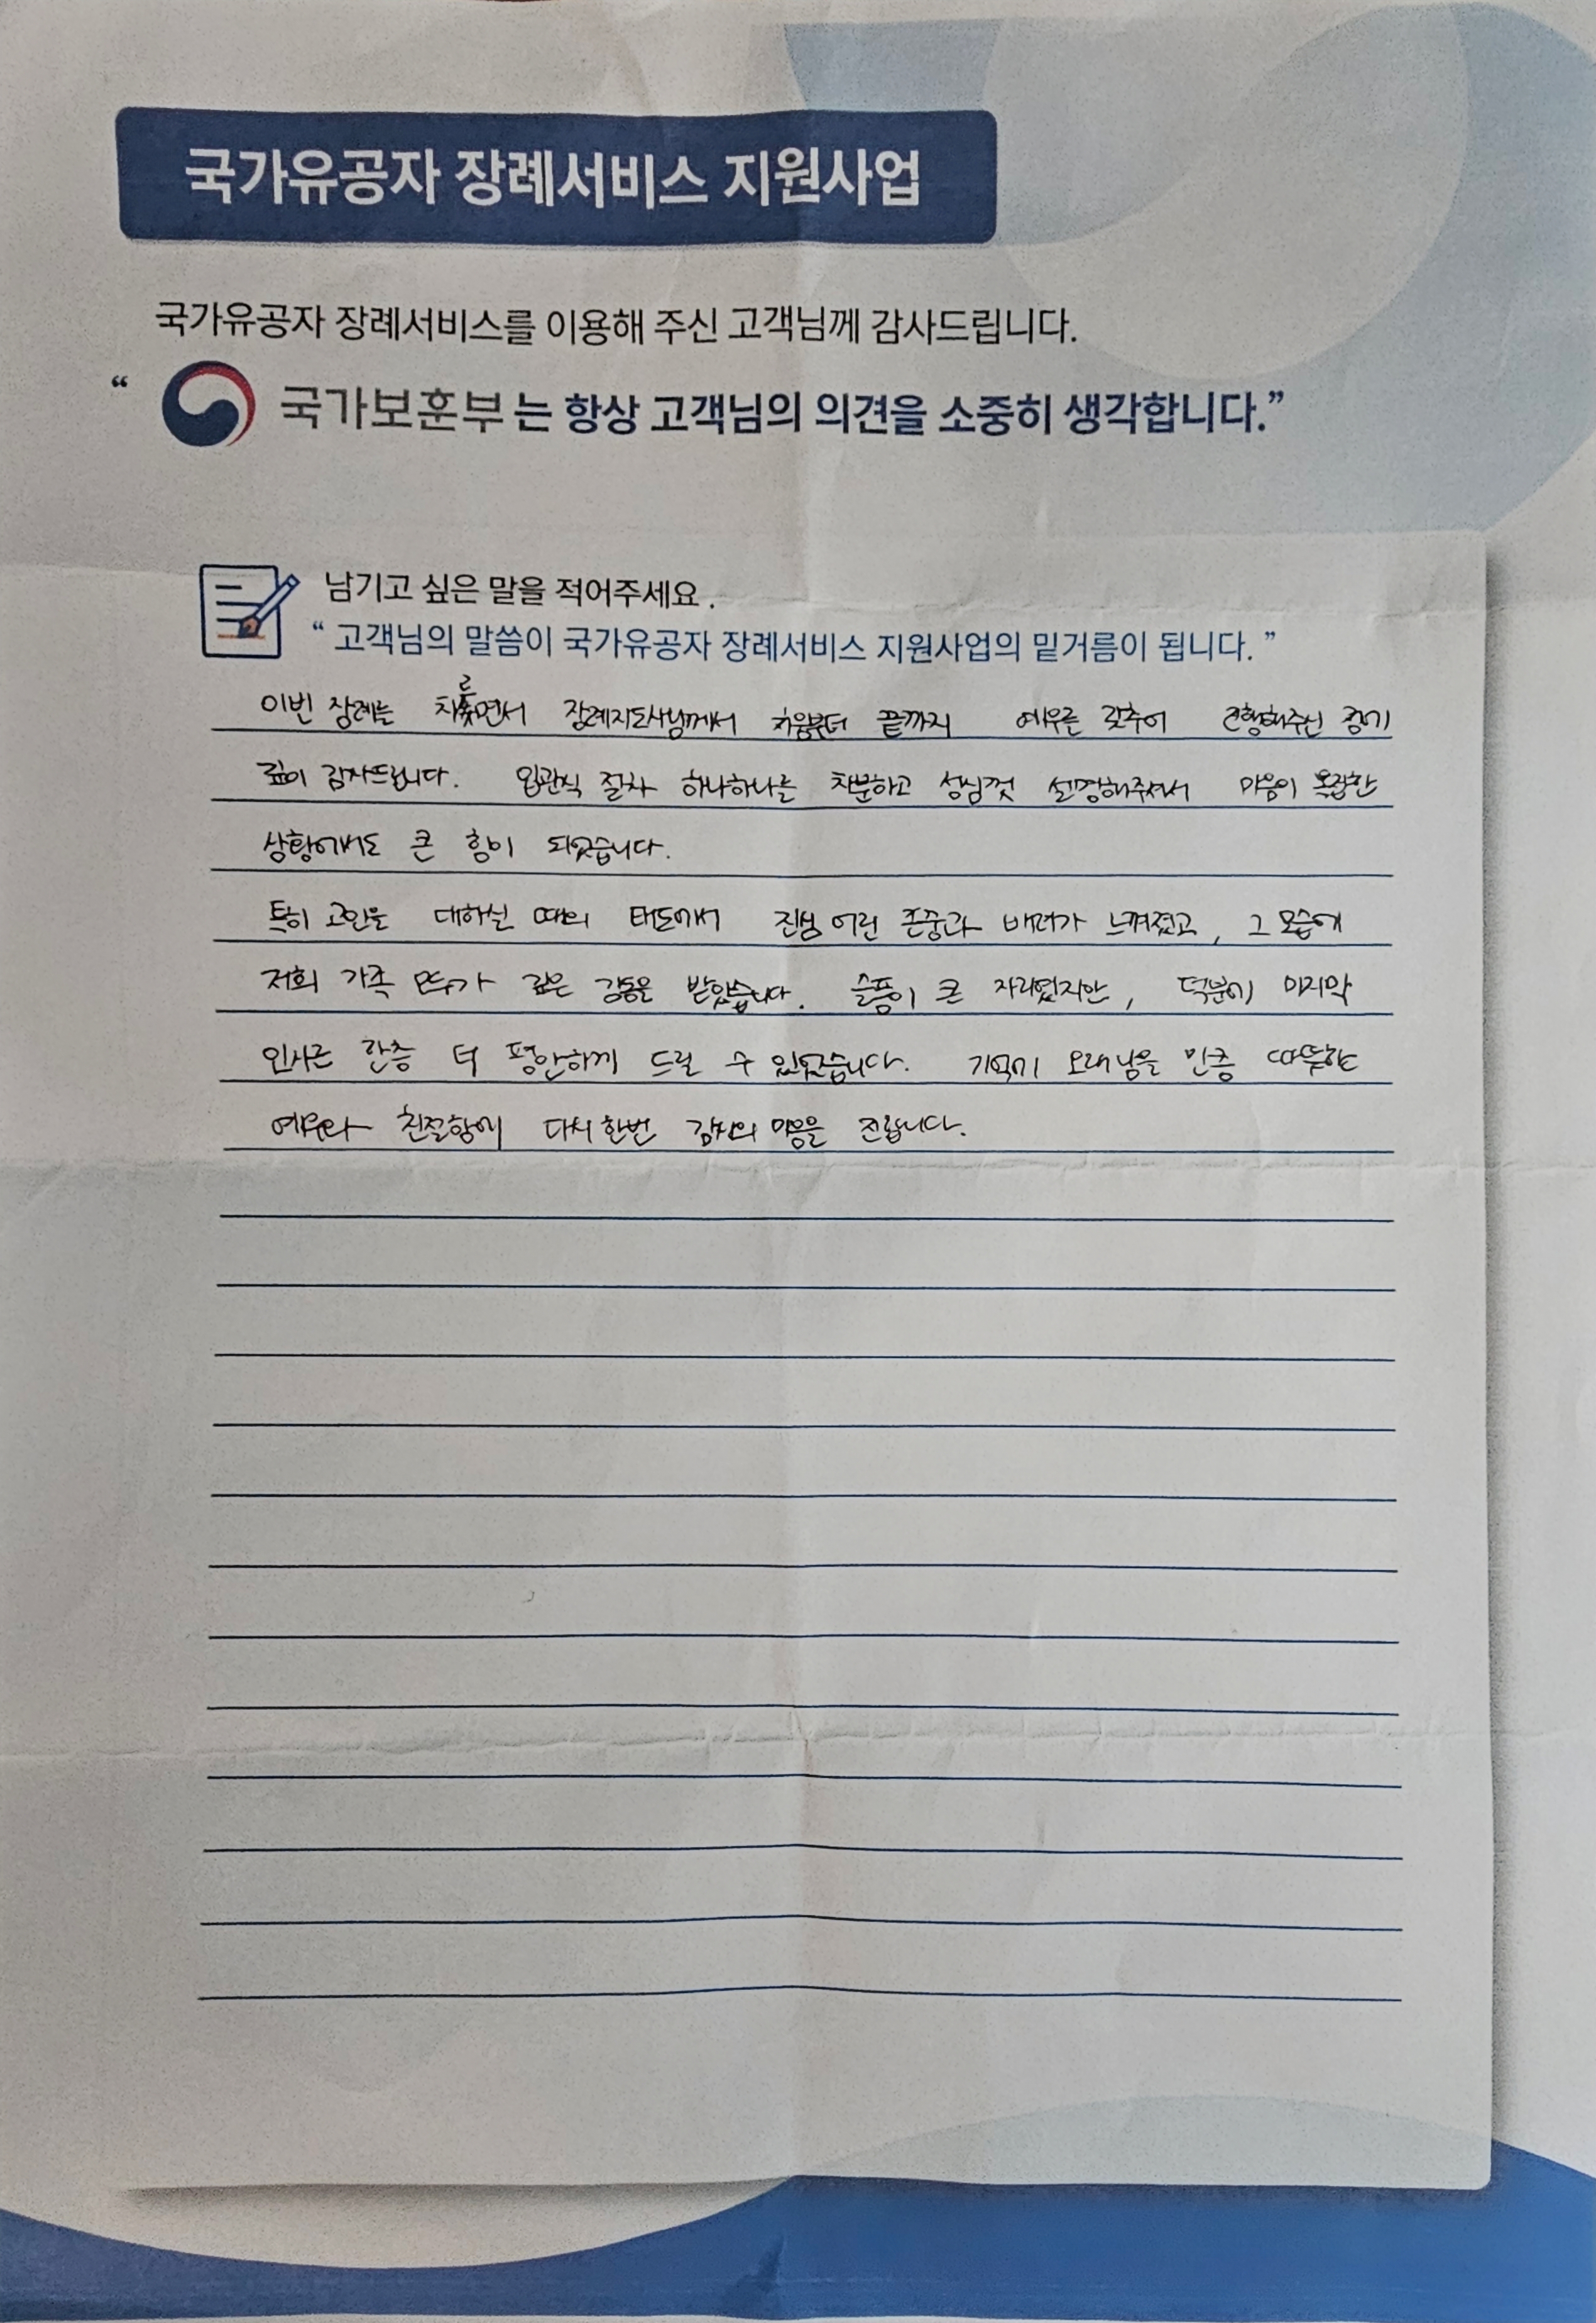 국가유공자 장례서비스 지원사업
국가유공자 장례서비스를 이용해 주신 고객님께 감사드립니다.
“ 국가보훈부 는 항상 고객님의 의견을 소중히 생각합니다.”
남기고 싶은 말을 적어주세요 .
“ 고객님의 말씀이 국가유공자 장례서비스 지원사업의 밑거름이 됩니다. ”
이번 장례를 치르면서 장례지도사님께서 처음부터 끝까지 예우를 갖추어 진행해주신 점에
깊이 감사드립니다. 입관식 절차 하나하나를 차분하고 성심껏 설명해주셔서 마음이 복잡한
상황에서도 큰 힘이 되었습니다.
특히 고인을 대하실 때의 태도에서 진심 어린 존중과 배려가 느껴졌고, 그 모습에
저희 가족 모두가 깊은 감동을 받았습니다. 슬픔이 큰 자리였지만, 덕분에 마지막
인사를 한층 더 평안하게 드릴 수 있었습니다. 기억에 오래 남을 만큼 따뜻한
예우와 친절함에 다시 한번 감사의 마음을 전합니다.